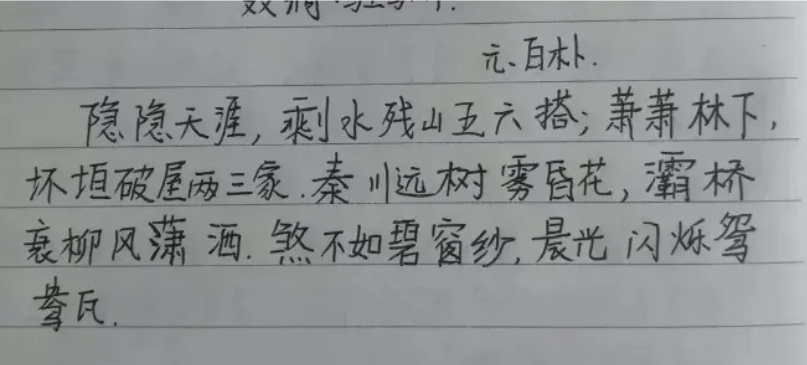 元.白朴.
隐隐天涯,剩水残山五六搭;萧萧林下,
坏垣破屋两三家.秦川远树雾昏花,灞桥
衰柳风潇洒.煞不如碧窗纱,晨光闪烁鸳
鸯瓦.